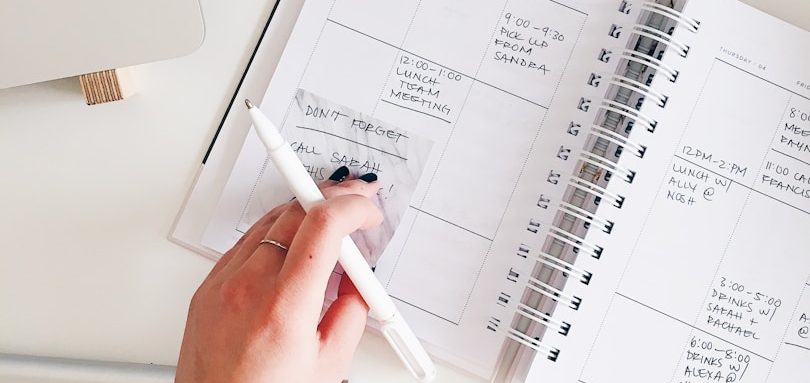 9:00-9:30
PICK UP
FROM
SANDRA
12:00-1:00
LUNCH
TEAM
MEETING
DON'T FORGET
CALL SARAH
THIS
!
THURSDAY | 04
12PM-2PM
LUNCH W/
ALLY @
NOSH
3:00-5:00
DRINKS W/
SARAH +
RACHAEL
6:00-8:00
DRINKS W/
ALEXA @
11:00